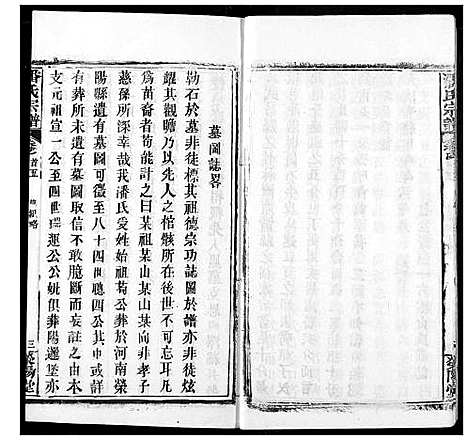 墓圖誌畧
勒石於墓非徒標其祖德宗功誌圖於譜亦非徒炫
耀其觀瞻乃以先人之棺骸所在後世不可忘耳凡
為苗裔者苟能計之曰某祖某山某向非孝子
慈孫所深幸哉潘氏受姓始祖荀公葬於河南榮
陽縣遺有墓圖可徵至八十四世聰四公其中或
有葬所未遺有墓圖取信不敢臆斷而妄註之由木
支元祖宣一公至四世瑞運公公妣俱葬陽邏堡亦
潘氏宗譜
卷首五
三
滎陽堂
潘氏宗譜
滎陽堂